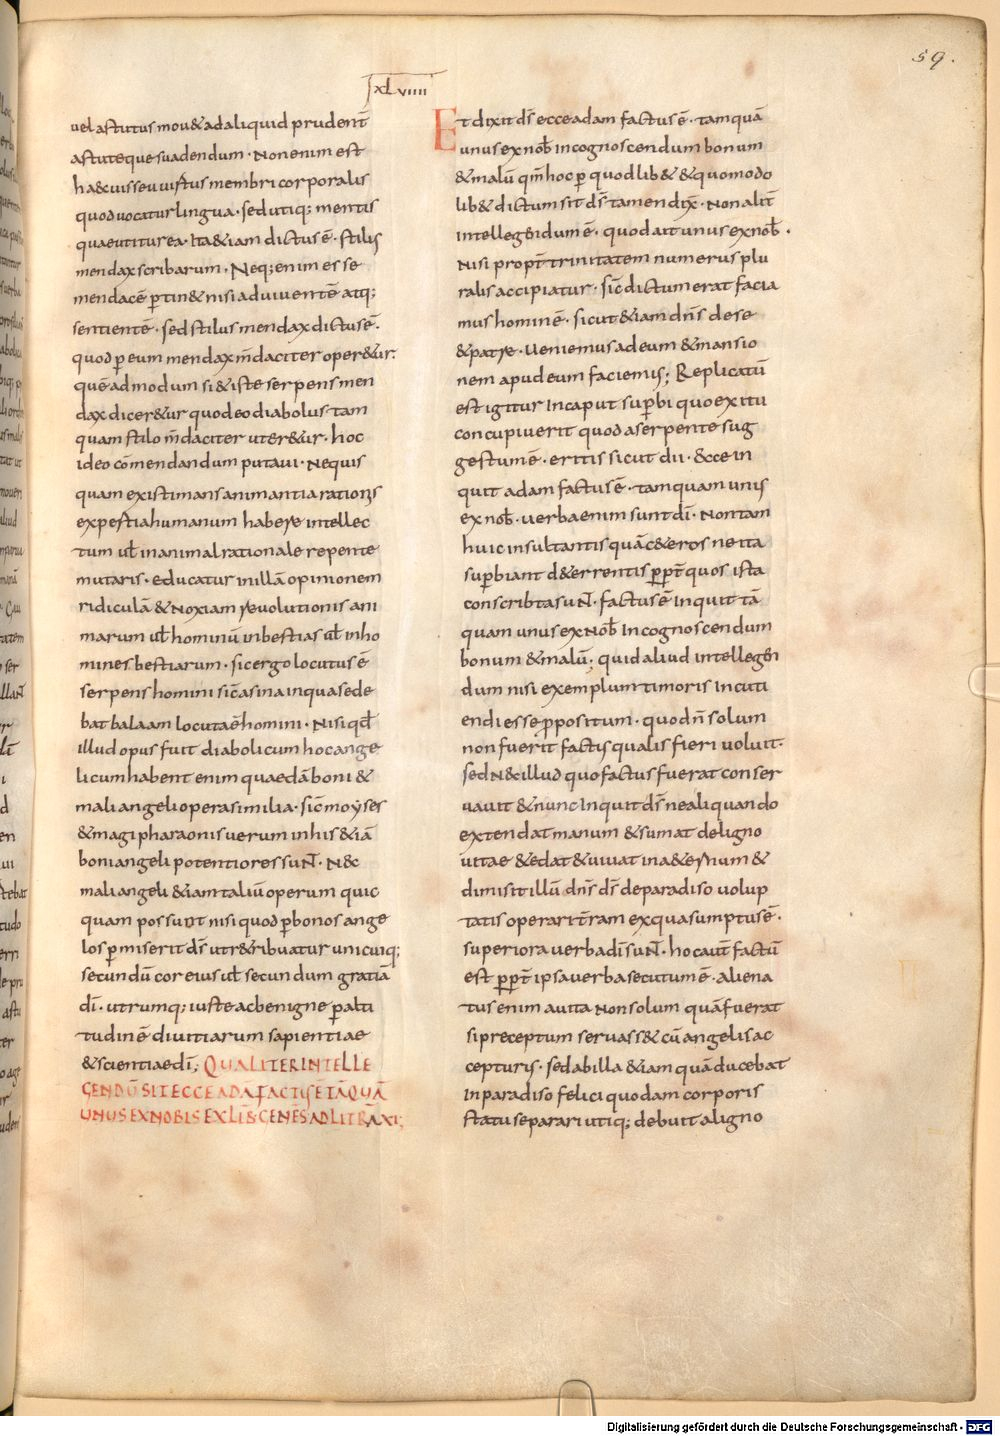 59.
XLVIIII
uel astutus mou& ad aliquid prudent̄
astuteque suadendum · Non enim est
ha&c uis seu uirtus membri corporalis
quod uocatur lingua · sed utiq; mentis
quae utitur ea · Ita &iam dictus ē · stilus
mendax scribarum · Neq; enim esse
mendacē ꝑtin& nisi ad uiuentē atq;
sentientē · sed stilus mendax dictus ē ·
quod ꝑ eum mendax m̄daciter oper&ur ·
quē ad modum si &iste serpens men
dax dicer&ur quod eo diabolus tam
quam stilo m̄daciter uter&ur · hoc
ideo cōmendandum putaui · Nequis
quam existimans animantia rationis
expestia humanum habere intellec
tum ul̄ in animal rationale repente
mutaris · educatur in illā opinionem
ridiculā & noxiam reuolutionis ani
marum ul̄ hominū in bestias ul̄ in ho
mines bestiarum · sic ergo locutus ē
serpens homini sic̄ asina in qua sede
bat balaam locuta ē homini · Nisi qd̄
illud opus fuit diabolicum hoc ange
licum habent enim quaedā boni &
mali angeli opera similia · sic̄ moyses
& magi pharaonis uerum in his &iā
boni angeli potentiores suN̄ · N&c
mali angeli &iam taliū operum quic
quam possunt nisi quod ꝑ bonos ange
los ꝑmiserit ds̄ ut r&ribuatur unicuiq;
secundū cor eius ul̄ secundum gratiā
dī · utrumq; iuste ac benigne ꝑ alti
tudinē diuitiarum sapientiae
& scientiae dī; QUALITER INTELLE
GENDŪ SIT ECCE ADĀ FACTUS E TĀQUĀ
UNUS EX NOBIS EX LIB̄ GENES̄ AD LITRĀ XI;
Et dixit ds̄ ecce adam factus ē · tamquā
unus ex nob̄ in cognoscendum bonum
& malū qm̄ hoc ꝑ quodlib& & quomodo
lib& dictum sit ds̄ tamen dix̄ · Non alit̄
intellegendum ē · quod ait unus ex nob̄ ·
Nisi propt̄ trinitatem numerus plu
ralis accipiatur · sic̄ dictum erat facia
mus hominē · sicut &iam dn̄s de se
& patre · Ueniemus ad eum & mansio
nem apud eum faciemus; Replicatū
est igitur in caput suꝑbi quo exitu
concupiuerit quod a serpente sug
gestum ē · eritis sicut dii · &cce in
quit adam factus ē · tamquam unus
ex nob̄ · uerba enim sunt dī · Non tam
huic insultantis quā c&eros ne ita
suꝑbiant d&errentis ꝓpt̄ quos ista
conscribta suN̄ · factus ē inquit tā
quam unus ex nob̄ In cognoscendum
bonum & malū · quid aliud intellegēn
dum nisi exemplum timoris incuti
endi esse ꝓpositum · quod n̄ solum
non fuerit factus qualis fieri uoluit ·
sed N&c illud quo factus fuerat conser
uauit & nunc Inquit ds̄ ne aliquando
extendat manum & sumat de ligno
uitae & edat & uiuat in a&ernum &
dimisit illū dn̄s ds̄ de paradiso uolup
tatis operari t̄ram ex qua sumptus ē ·
superiora uerba dī suN̄ · hoc aut̄ factū
est ꝓpt̄ ipsa uerba secutum ē · aliena
tus enim a uita non solum quā fuerat
si preceptum seruass& cū angelis ac
cepturus · sed ab illa &iam quā ducebat
in paradiso felici quodam corporis
statu separari utiq; debuit a ligno
Digitalisierung gefördert durch die Deutsche Forschungsgemeinschaft - DFG